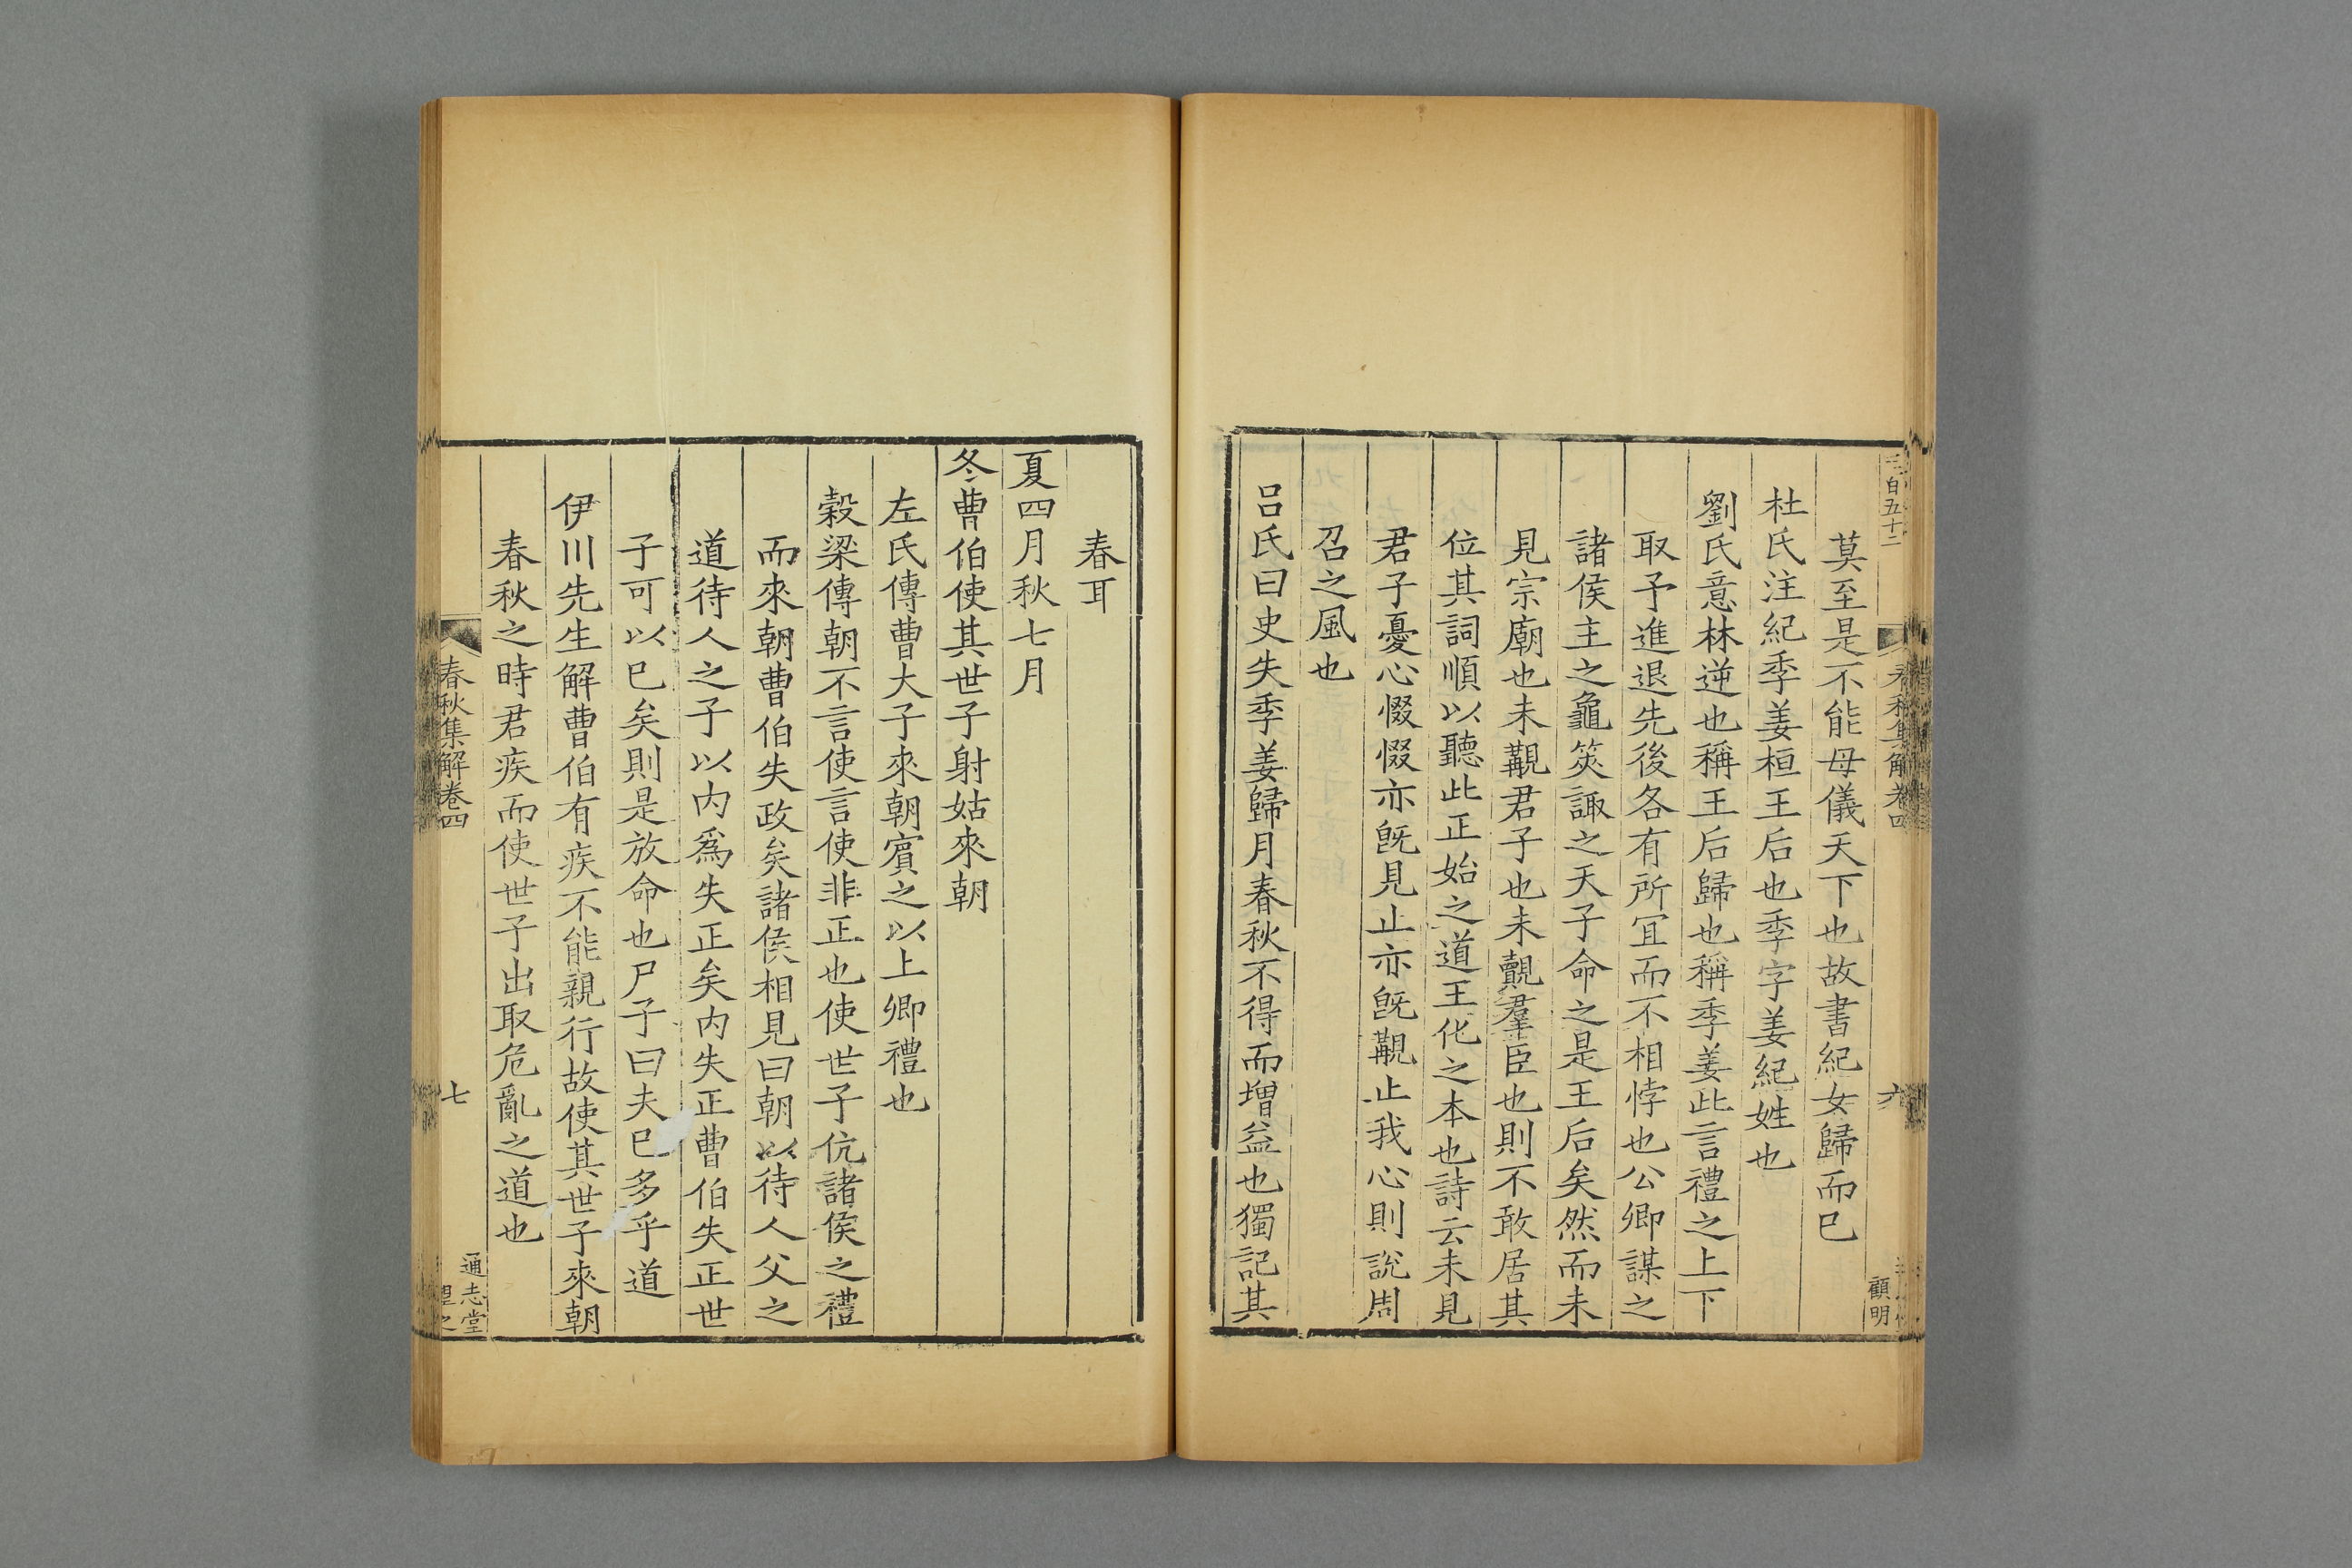 三百五十二
春秋集解卷四
六
顧明
莫至是不能母儀天下也故書紀女歸而已
杜氏注紀季姜桓王后也季字姜紀姓也
劉氏意林逆也稱王后歸也稱季姜此言禮之上下
取予進退先後各有所宜而不相悖也公卿謀之
諸侯主之龜筴諏之天子命之是王后矣然而未
見宗廟也未覯君子也未覿羣臣也則不敢居其
位其詞順以聽此正始之道王化之本也詩云未見
君子憂心惙惙亦旣見止亦旣覯止我心則說周
召之風也
呂氏曰史失季姜歸月春秋不得而增益也獨記其
春耳
夏四月秋七月
冬曹伯使其世子射姑來朝
左氏傳曹大子來朝賓之以上卿禮也
穀梁傳朝不言使言使非正也使世子伉諸侯之禮
而來朝曹伯失政矣諸侯相見曰朝以待人父之
道待人之子以内爲失正矣内失正曹伯失正世
子可以已矣則是放命也尸子曰夫已多乎道
伊川先生解曹伯有疾不能親行故使其世子來朝
春秋之時君疾而使世子出取危亂之道也
春秋集解卷四
七
通志堂